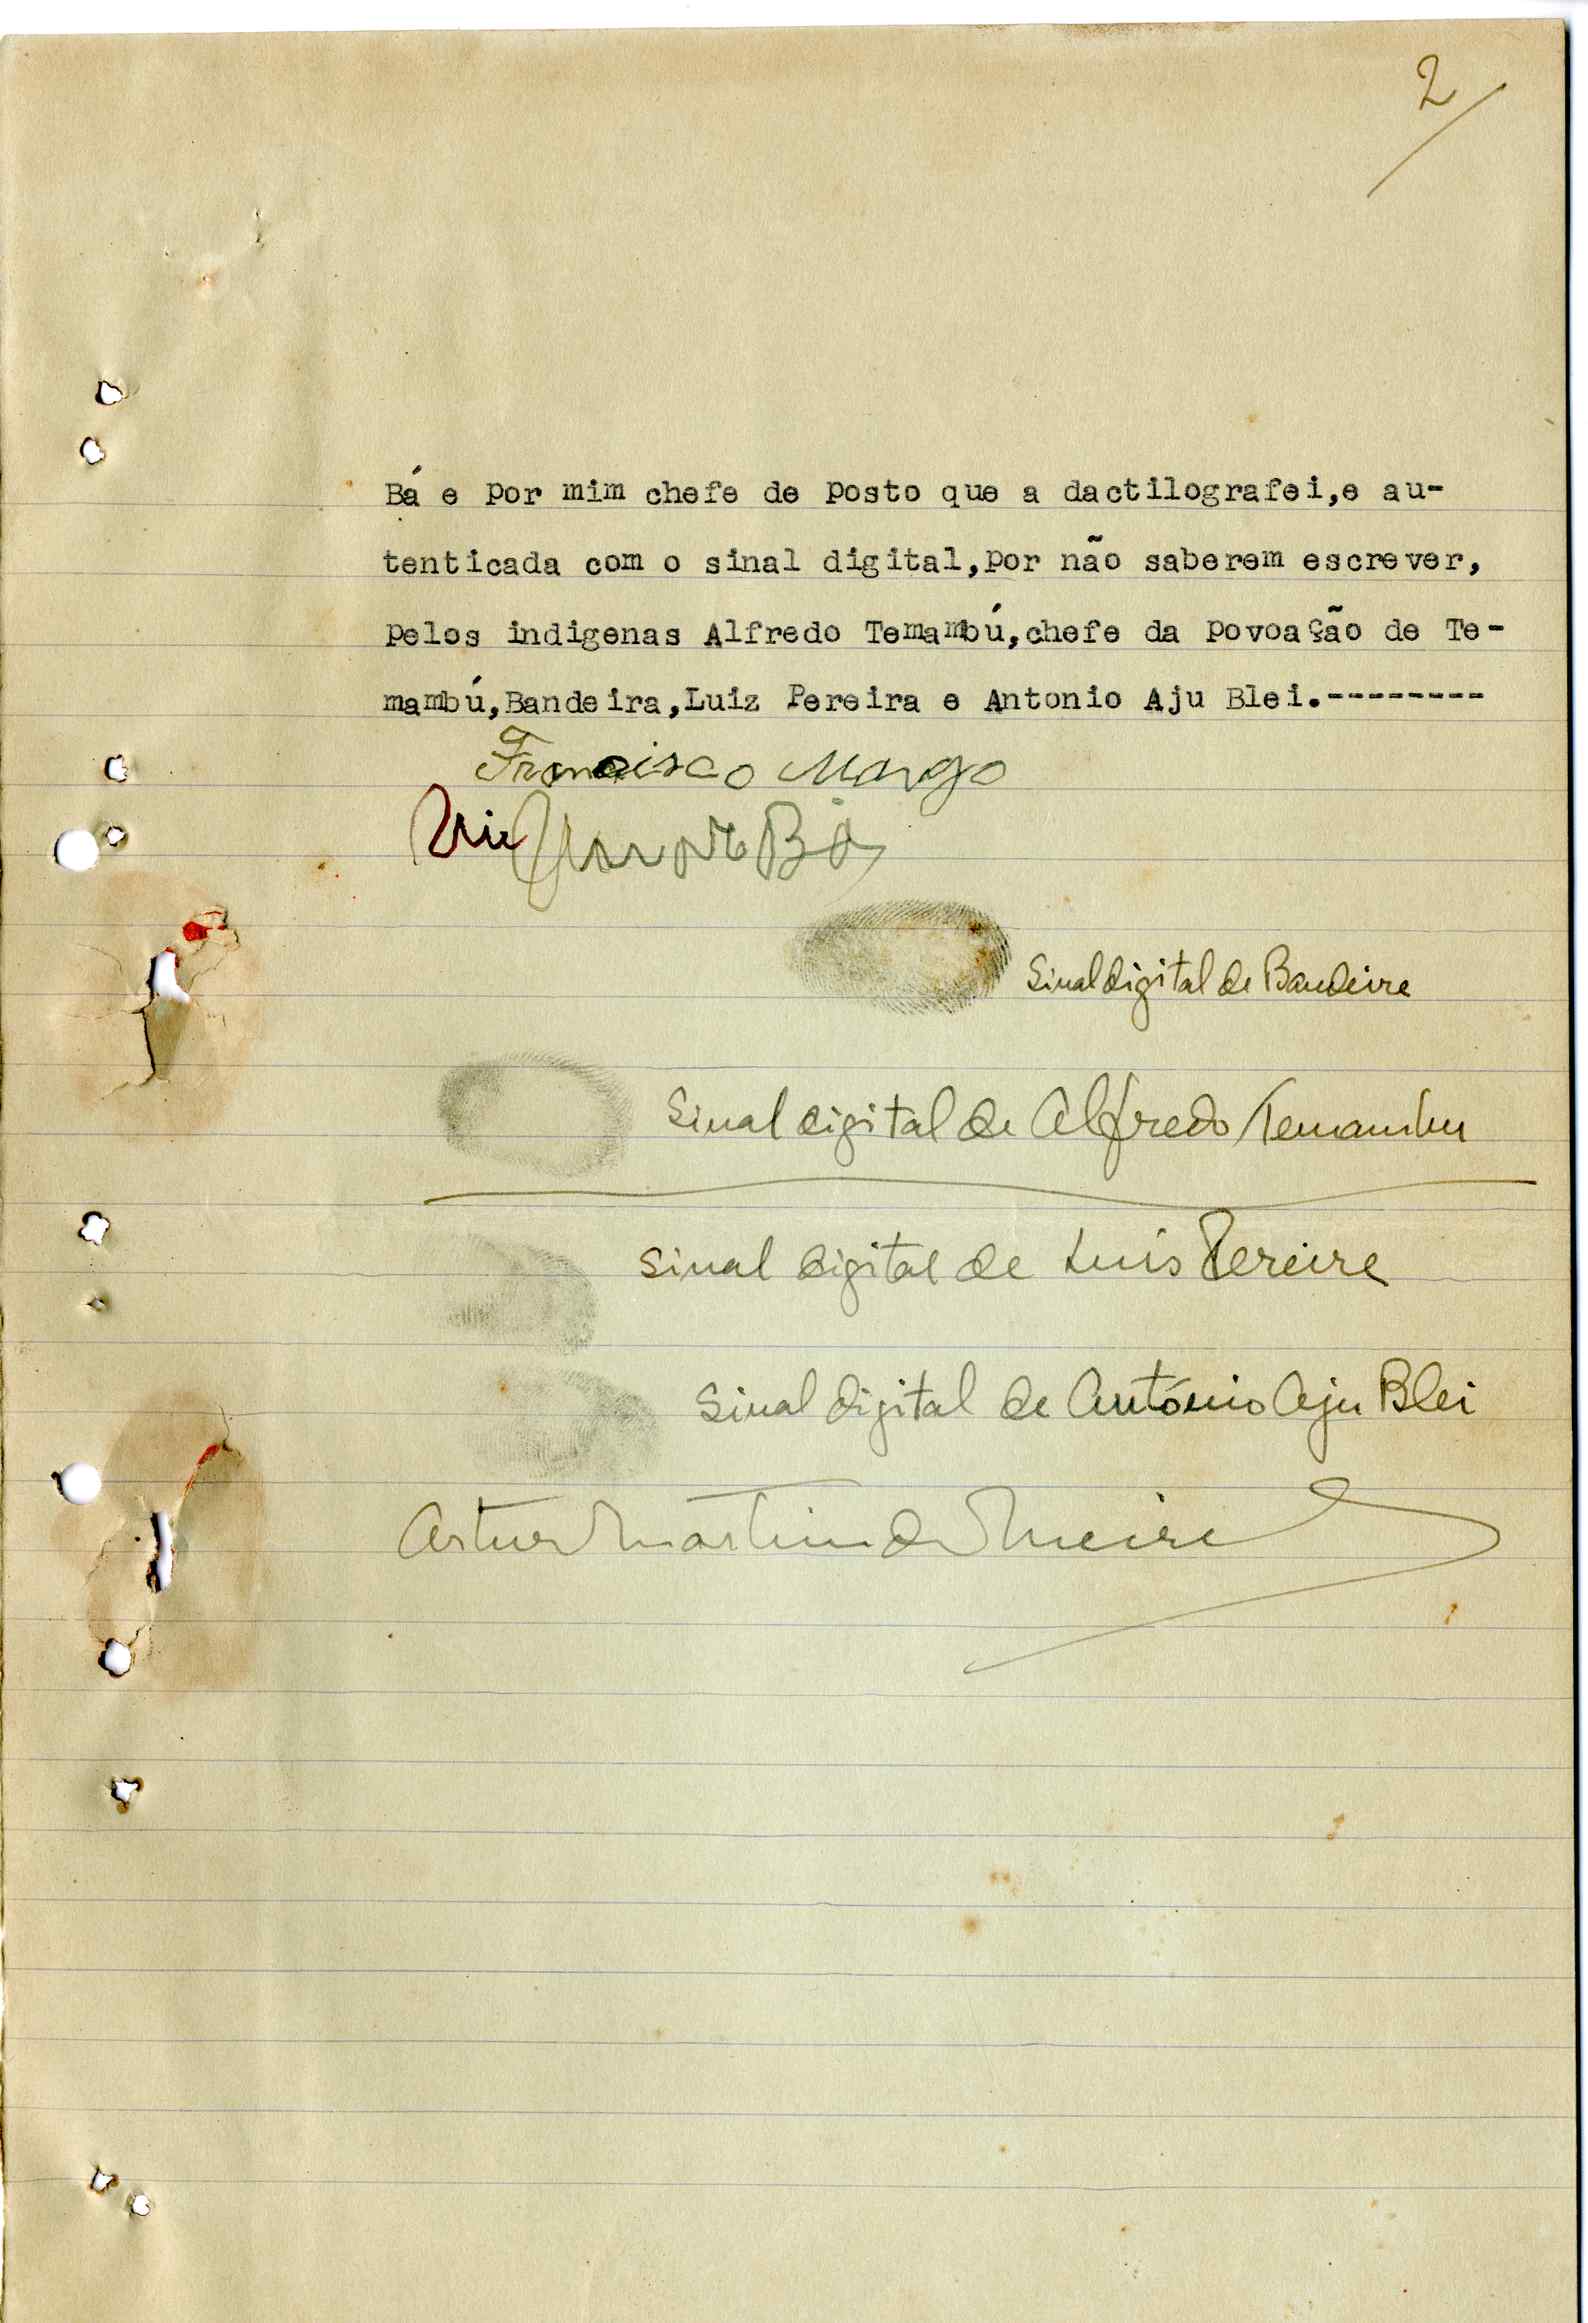 2
Bá e por mim chefe de posto que a dactilografei,e au-
tenticada com o sinal digital,por não saberem escrever,
pelos indigenas Alfredo Temambú,chefe da povoação de Te-
mambú,Bandeira,Luiz Pereira e Antonio Aju Blei.--------
Francisco Mango
Bá
Sinal digital de Bandeira
Sinal digital de Alfredo Temambu
Sinal digital de Luis Pereira
Sinal digital de António Aju Blei
Artur Martins de Meireles